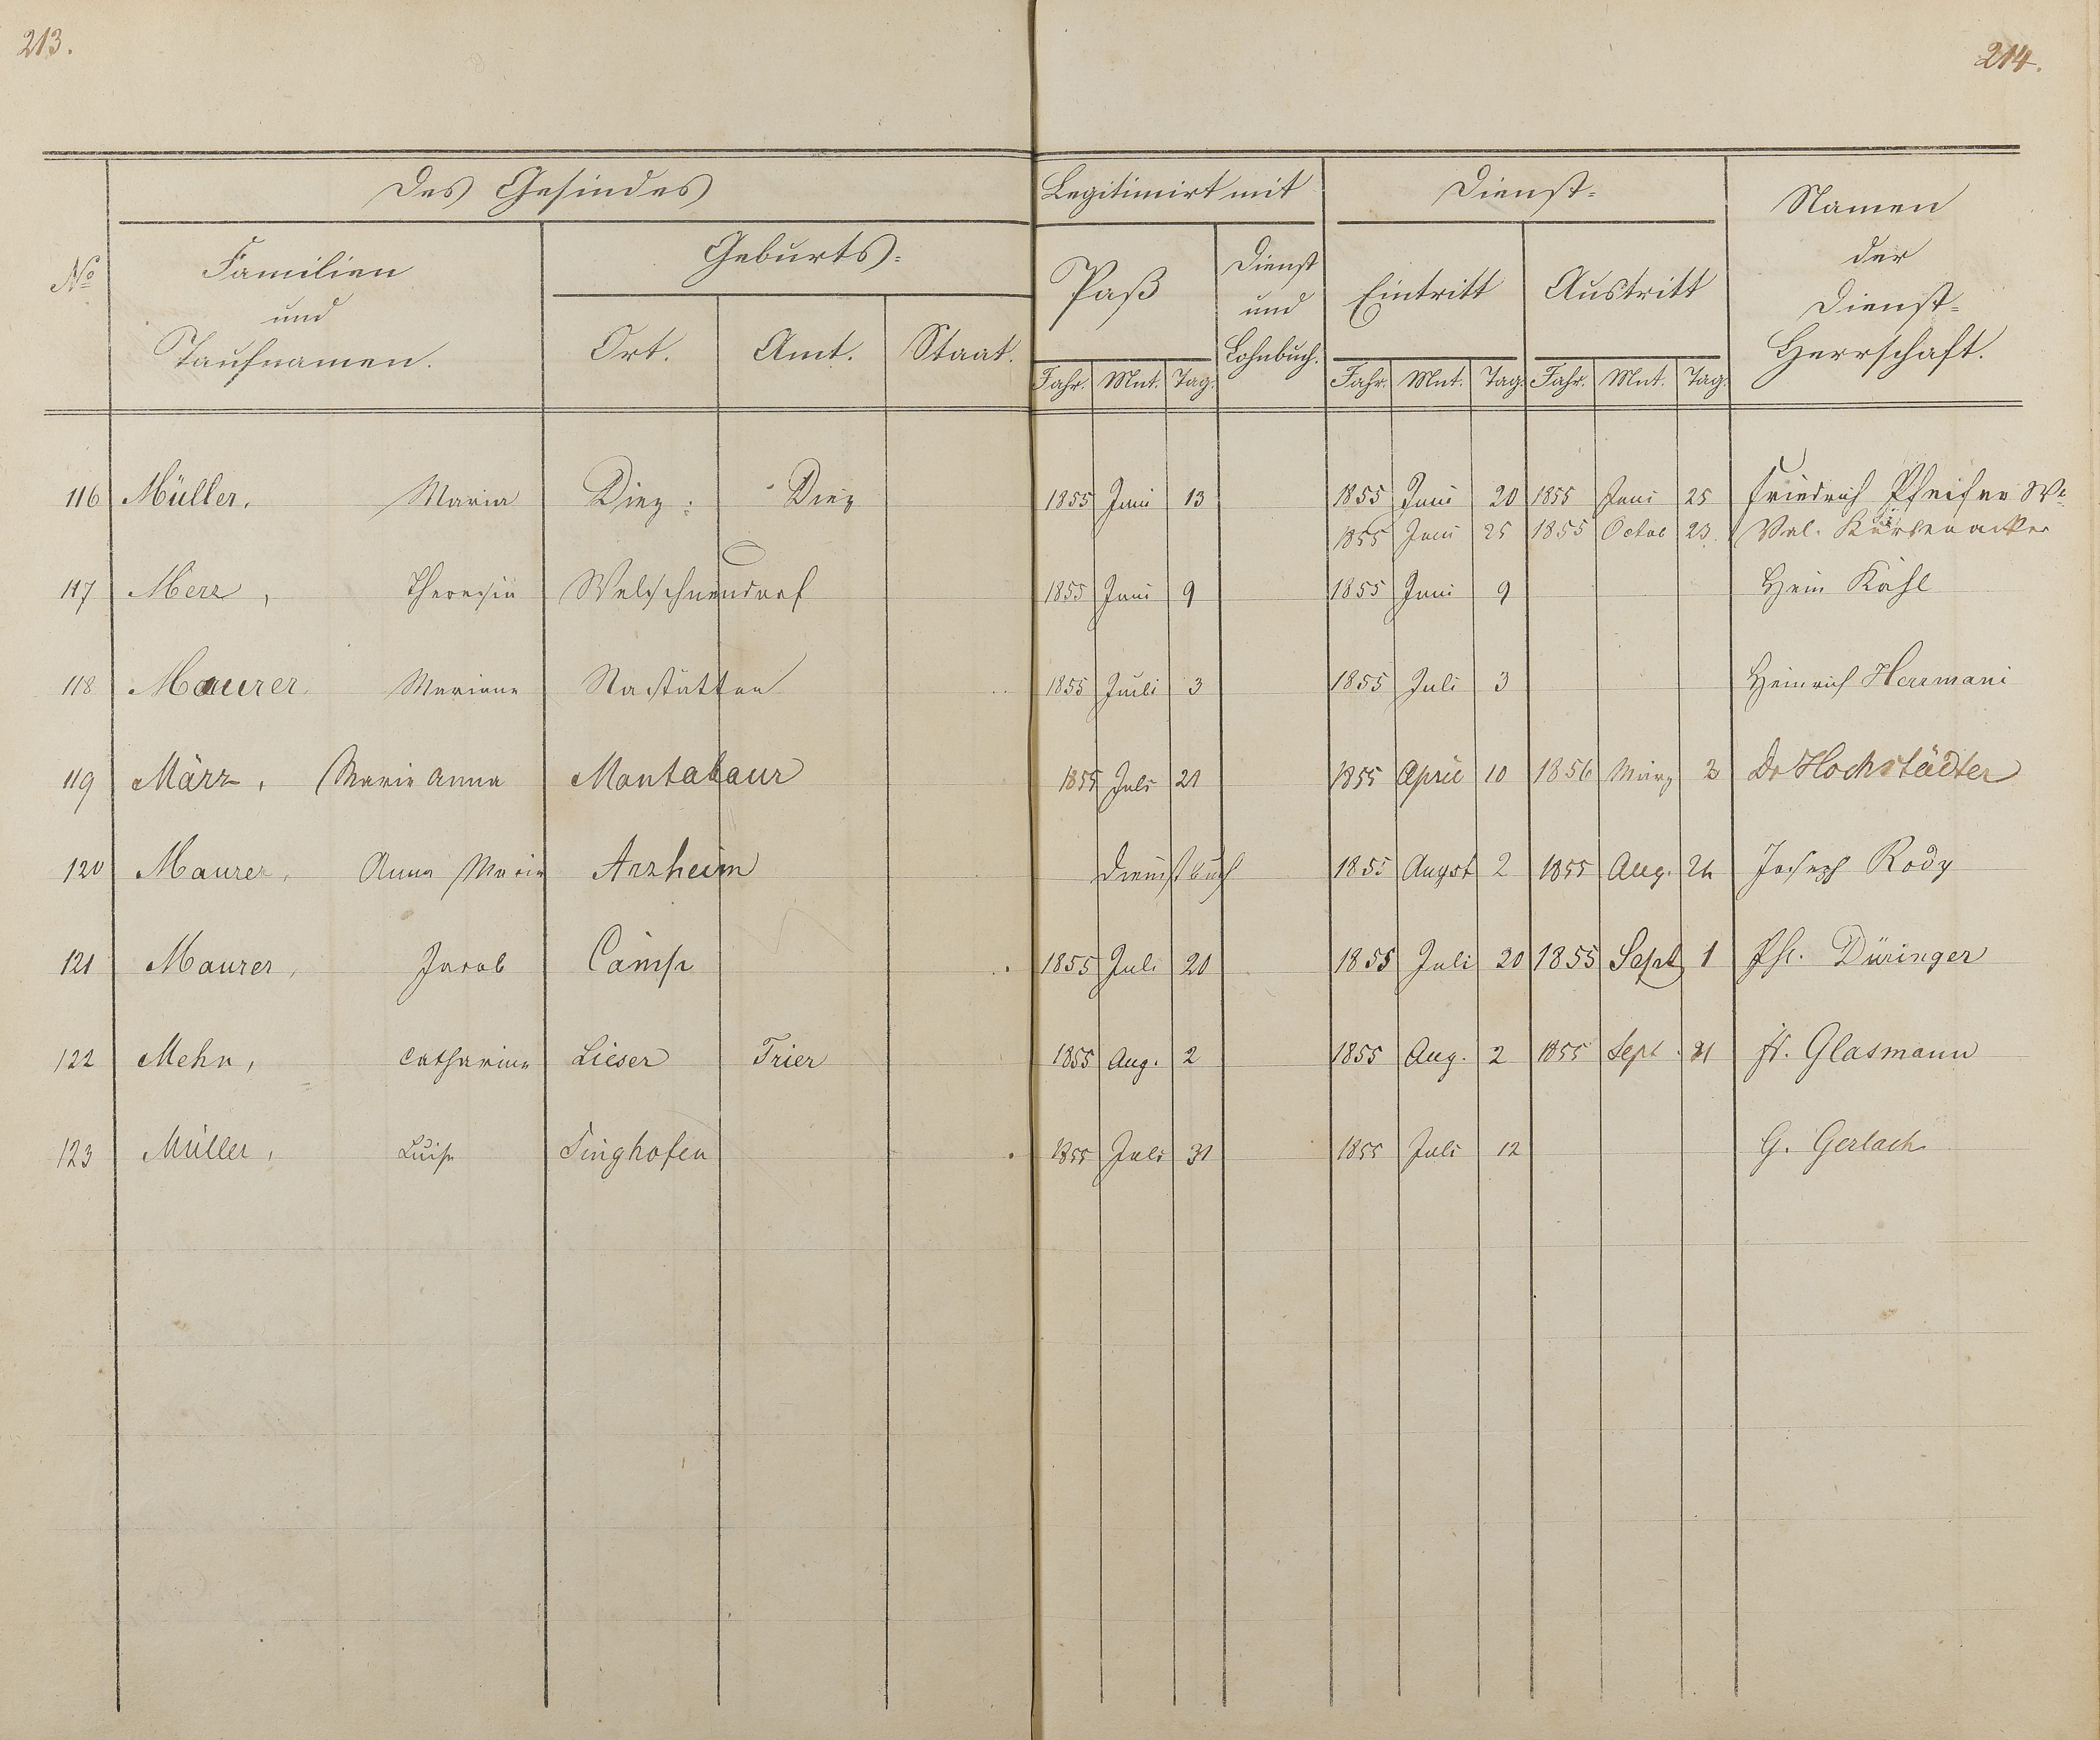 213.
214.
Des Gesindes
Legitimirt mit
Dienst=
Namen
der
Dienst=
Herrschaft.
No
Familien
und
Taufnamen.
Geburts=
Ort. Amt. Staat.
Paß
Dienst
und
Lohnbuch.
Eintritt Austritt
Jahr. Mnt. Tag. Jahr. Mnt. Tag. Jahr. Mnt. Tag.
116 Müller, Maria Diez Diez 1855 Juni 13 1855 Juni 20 1855 Juni 25 Friedrich Pfeifer We
1855 Juni 25 1855 Octob 23 Val.
117 Merz, Theresia Welschneudorf 1855 Juni 9 1855 Juni 9 Hein Kähl
118 Maurer, Mariane Nastätten 1855 Juli 3 1855 Juli 3 Heinrich Herrmani
119 März, Marie Anna Montabaur 1855 Juli 21 1855 April 10 1856 März 2 Dr Hochstädter
120 Maurer, Anna Marie Arzheim Dienstbuch 1855 Augst 2 1855 Aug. Joseph Rody
121 Maurer, Jacob Camp 1855 Juli 20 1855 Juli 20 1855 Sept 1 Ph. Düringer
122 Mehn, Catharine Lieser Trier 1855 Aug. 2 1855 Aug. 2 1855 Sept. 21 Fr. Glasmann
123 Müller, Luise Singhofen 1855 Juli 31 1855 Juli 12 G. Gerlach